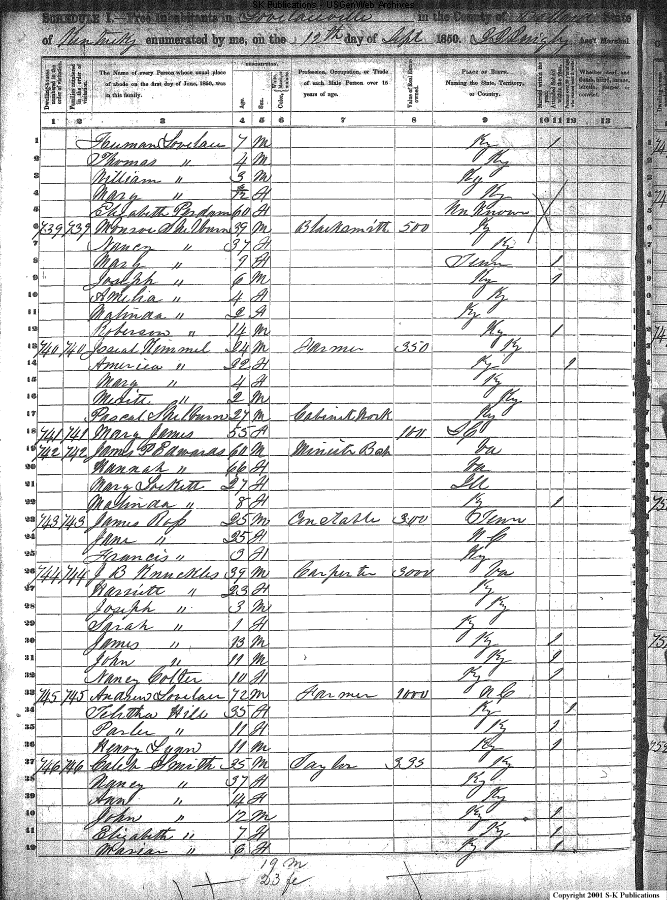 S-K Publications - USGenWeb Archives
SCHEDULE I.—Free Inhabitants in Lovelaceville in the County of Ballard State
of Kentucky enumerated by me, on the 12th day of Sept 1850. Ass't Marshal.
Dwelling-houses numbered in the order of visitation.
Families numbered in the order of visitation.
The Name of every Person whose usual place of abode on the first day of June, 1850, was in this family.
DESCRIPTION.
Age.
Sex.
Color, White, black, or mulatto.
Profession, Occupation, or Trade of each Male Person over 15 years of age.
Value of Real Estate owned.
PLACE OF BIRTH. Naming the State, Territory, or Country.
Married within the year.
Whether deaf and dumb, blind, insane, idiotic, pauper, or convict.
1 2 3 4 5 6 7 8 9 10 11 12 13
1 Lovelace 7 M Ky 1
2 Thomas " 4 M Ky
3 William " 3 M Ky
4 Mary " /12 F Ky
5 Elizabeth 60 F Unknown
6 739 739 Monroe Shelburn 39 M Blacksmith 500 Ky
7 Nancy " 37 F Ky
8 Mary " 7 F Tenn 1
9 Joseph " 6 M Ky 1
10 Amelia " 4 F Ky
11 Malinda " 2 F Ky
12 Roberson " 14 M Ky 1
13 740 740 Josiah Kimmel 24 M Farmer 350 Ky
14 America " 22 F Ky 1
15 Mary " 4 F Ky
16 " 2 M Ky
17 Pascal Shelburn 27 M Cabinet Work Ky
18 741 741 Mary James 55 F 100 S C
19 742 742 James P Edwards 60 M Minister Bap Va
20 Hannah " 66 F Va
21 Mary Lockett 27 F Ill
22 Malinda " 8 F Ky 1
23 743 743 James Ross 25 M Constable 300 Tenn
24 Jane " 25 F N C
25 Francis " 3 F Ky
26 744 744 J B Knuckles 39 M Carpenter 3000 Va
27 Harriett " 23 F Ky
28 Joseph " 3 M Ky
29 Sarah " 1 F Ky
30 James " 13 M Ky 1
31 John " 11 M Ky 1
32 Nancy Colter 10 F Ky 1
33 745 745 Andrew Lovelace 72 M Farmer 1000 N C
34 Telitha Hill 35 F Ky 1
35 " 11 F Ky 1
36 Henry Lynn 11 M Ky 1
37 746 746 Caleb Smith 35 M Taylor 335 Ky
38 Nancy " 37 F Ky
39 Ann " 14 F Ky
40 John " 12 M Ky 1
41 Elizabeth " 7 F Ky 1
42 " 6 F Ky 1
19 M
23 fe
Copyright 2001 S-K Publications